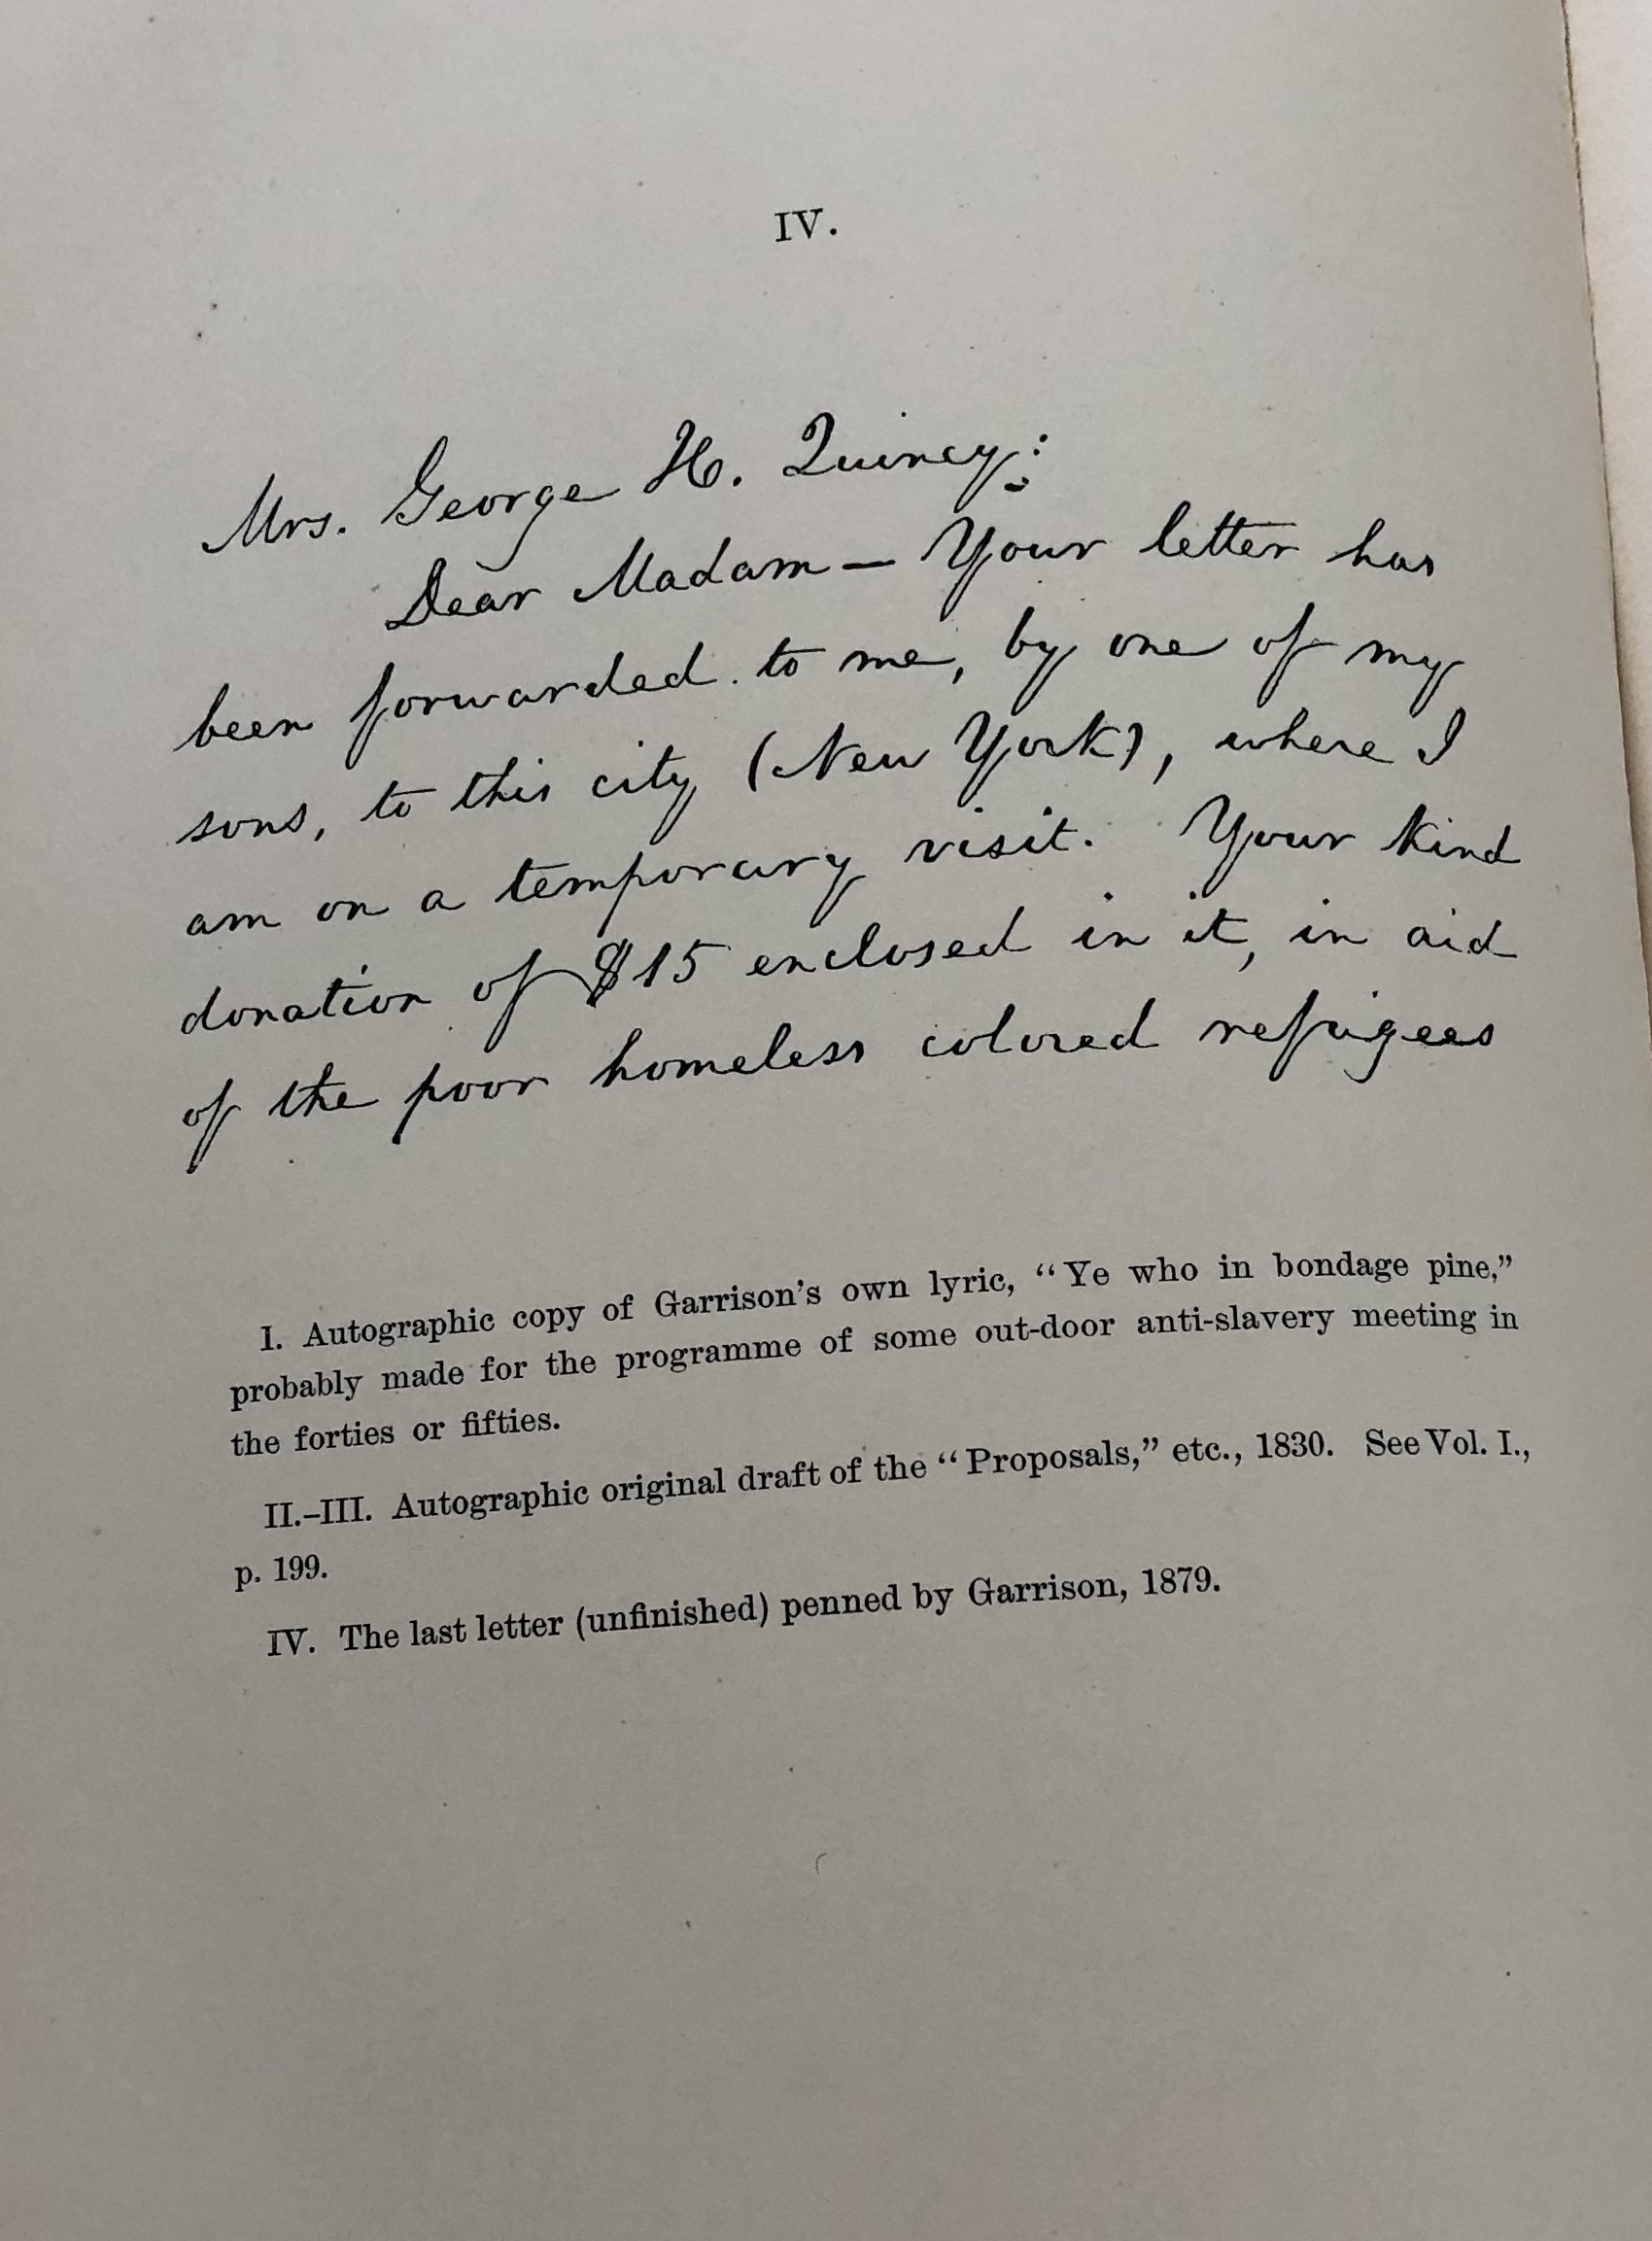 IV.
Mrs. George H. Quincy:
Dear Madam — Your letter has
been forwarded to me, by one of my
sons, to this city (New York), where I
am on a temporary visit. Your kind
donation of $15 enclosed in it, in aid
of the poor homeless colored refugees
I. Autographic copy of Garrison's own lyric, “Ye who in bondage pine,”
probably made for the programme of some out-door anti-slavery meeting in
the forties or fifties.
II.–III. Autographic original draft of the “Proposals,” etc., 1830. See Vol. I.,
p. 199.
IV. The last letter (unfinished) penned by Garrison, 1879.